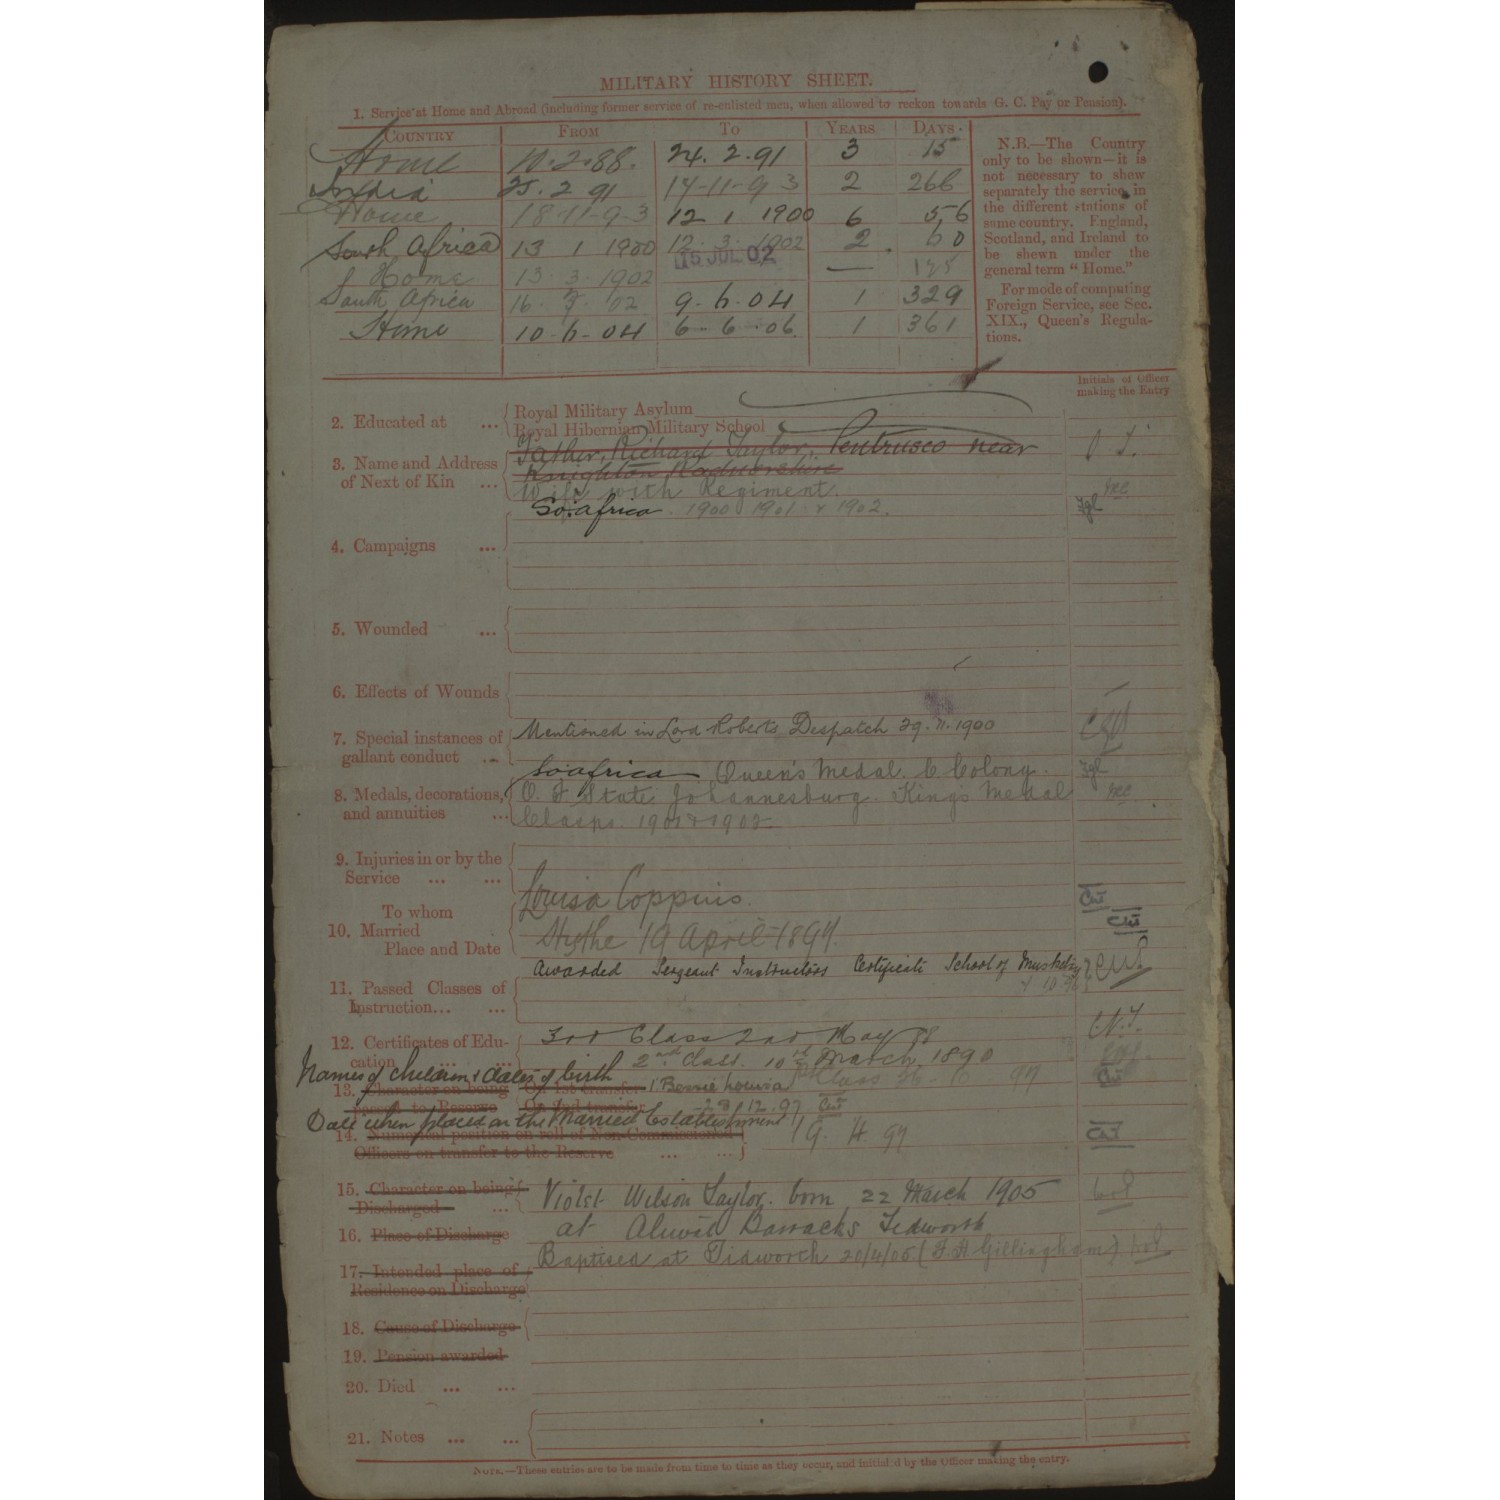 MILITARY HISTORY SHEET.
1. Service at Home and Abroad (including former service of re-enlisted men, when allowed to reckon towards G. C. Pay or Pension).
COUNTRY FROM TO YEARS DAYS.
Home 10.2.88. 24.2.91 3 15
India 25.2 91 14-11-93 2 266
Home 18-11-93 12 1 1900 6 56
South Africa 13 1 1900 12.3.1902 2. 60
Home 13 3 1902 15 JUL 02 — 125
South Africa 16. 7. 02 9.6.04 1 329
Home 10.6.04 6.6.06. 1 361
N.B.—The Country
only to be shown—it is
not necessary to shew
separately the service in
the different stations of
same country. England,
Scotland, and Ireland to
be shewn under the
general term "Home."
For mode of computing
Foreign Service, see Sec.
XIX., Queen's Regula-
tions.
Initials of Officer
making the Entry
2. Educated at ... Royal Military Asylum
Royal Hibernian Military School
Father, Richard Taylor, near
3. Name and Address Knighton Radnorshire
of Next of Kin ... Wife with Regiment.
So. Africa 1900 1901 & 1902.
4. Campaigns ...
5. Wounded ...
6. Effects of Wounds
Mentioned in Lord Roberts Despatch 29.11.1900
7. Special instances of
gallant conduct ...
So. Africa Queen's Medal. C Colony.
8. Medals, decorations, O. F State Johannesburg. King's Medal
and annuities ... Clasps 1901 & 1902
9. Injuries in or by the
Service ... ...
To whom Louisa Coppins.
10. Married
Place and Date Hythe 19 April 1897.
Awarded Sergeant Instructors Certificate School of Musketry
11. Passed Classes of
Instruction... ...
12. Certificates of Edu- 3rd Class 2nd May 88
cation ... ... 2nd Class. 10th March 1890
Names of Children & dates of birth 1. Bessie Louisa Class 26 6 97
13. Character on being On 1st transfer
passed to Reserve On 2nd transfer 28.12.97
Date when placed on the Married Establishment 19. 4 97
14. Numerical position on roll of Non-Commissioned
Officers on transfer to the Reserve ... ...
15. Character on being Violet Wilson Taylor. born 22 March 1905
Discharged ...
16. Place of Discharge at Barracks Tidworth
Baptised at Tidworth 20/4/05 (F. A Gillingham)
17. Intended place of
Residence on Discharge
18. Cause of Discharge
19. Pension awarded
20. Died ... ...
21. Notes ... ...
NOTE.—These entries are to be made from time to time as they occur, and initialed by the Officer making the entry.